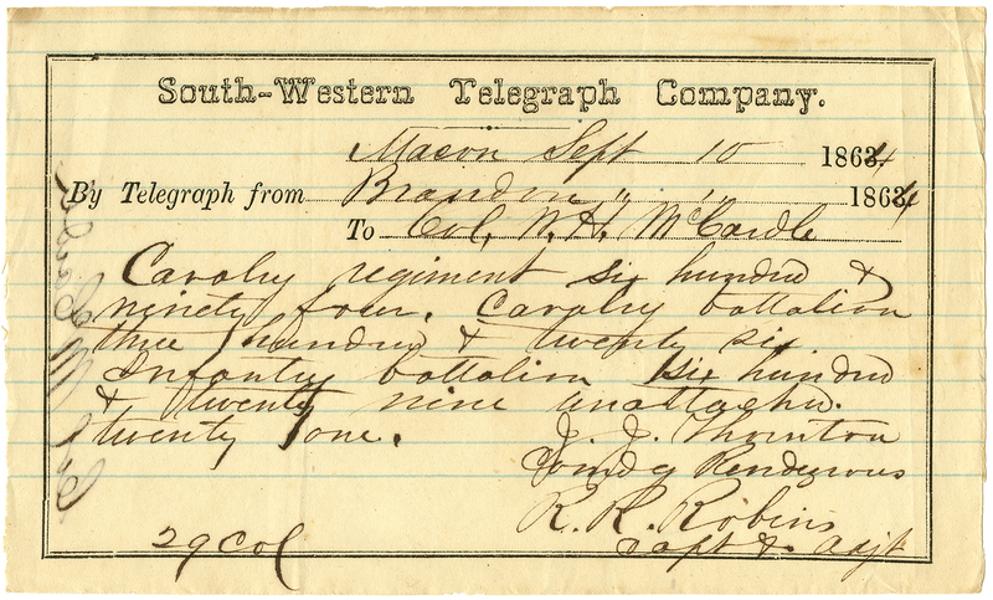 South-Western Telegraph Company.
Macon Sept 10 18634
By Telegraph from Brandon " " 18634
To Col, W. H. McCardle
Cavalry regiment six hundred &
ninety four. Cavalry battalion
three hundred & twenty six
Infantry battalion six hundred
& twenty nine unattached.
twenty one.
J. J. Thornton
Comdg Rendezvous
R. R. Robins
Capt & Adjt
29 Col
Col McCardle